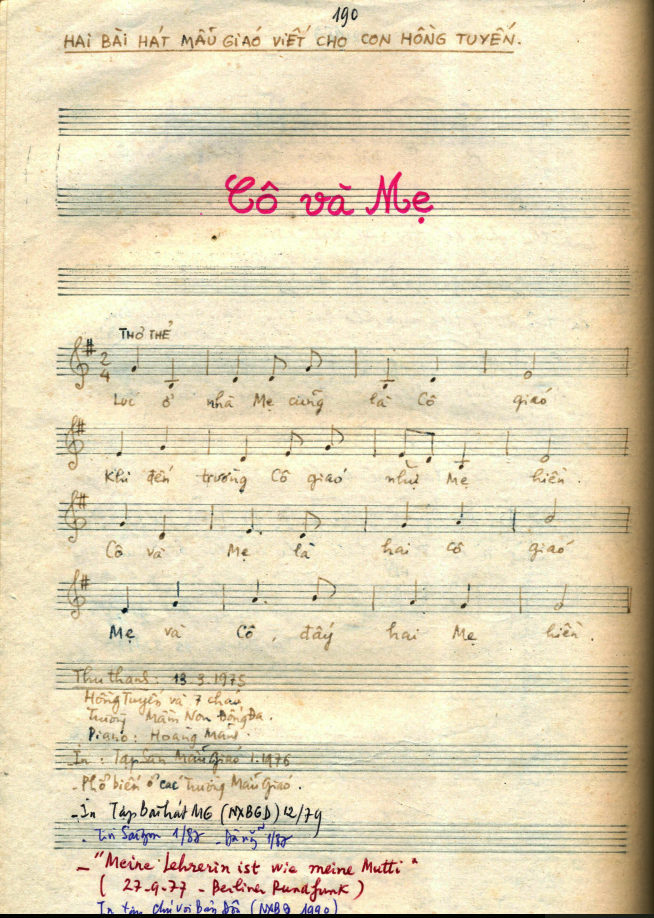 190
HAI BÀI HÁT MẪU GIÁO VIẾT CHO CON HỒNG TUYẾN.
Cô và Mẹ
THỎ THẺ
2
4
Lúc ở nhà Mẹ cũng là Cô giáo
Khi đến trường Cô giáo như Mẹ hiền.
Cô và Mẹ là hai cô giáo
Mẹ và Cô, đấy hai Mẹ hiền.
Thu thanh: 13.3.1975
Hồng Tuyến và 7 cháu
Trường Mầm Non Đống Đa.
Piano: Hoàng Mãnh.
In: Tập San Mẫu Giáo 1.1976
- Phổ biến ở các Trường Mẫu Giáo.
- In Tập bài hát MG (NXBGD) 12/79
1/82 - 1/82
- "Meine Lehrerin ist wie meine Mutti"
( 27-9-77 - Berliner Rundfunk )
(NXBGD 1990)